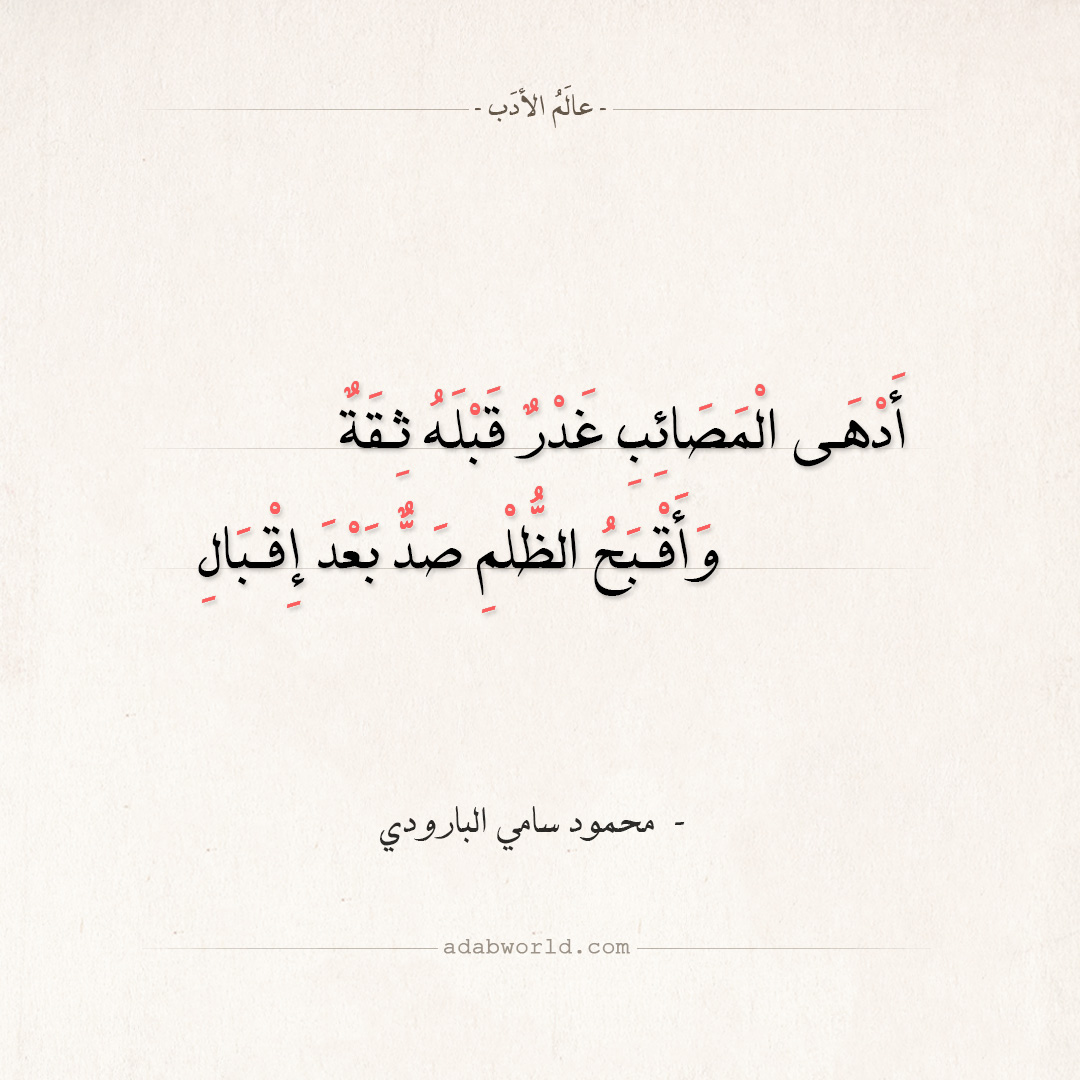 - عالَمُ الأدَب -
أَدْهَى الْمَصَائِبِ غَدْرٌ قَبْلَهُ ثِقَةٌ
وَأَقْبَحُ الظُّلْمِ صَدٌّ بَعْدَ إِقْبَالِ
- محمود سامي البارودي
adabworld.com